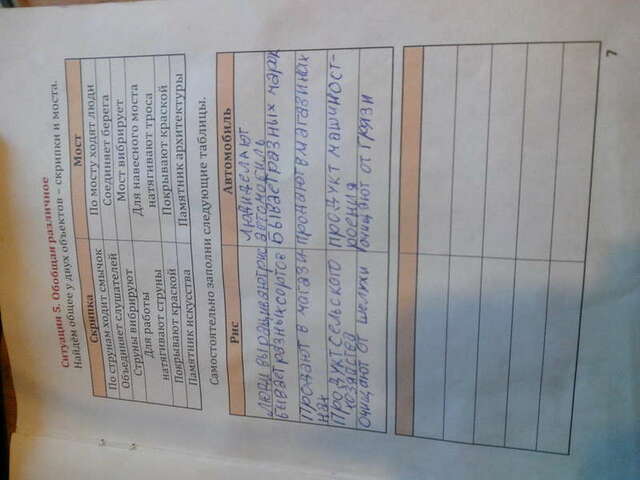 Ситуация 5. Обобщая различное
Найдём общее у двух объектов – скрипки и моста.
Скрипка Мост
По струнам ходит смычок По мосту ходят люди
Объединяет слушателей Соединяет берега
Струны вибрируют Мост вибрирует
Для работы Для навесного моста
натягивают струны натягивают троса
Покрывают краской Покрывают краской
Памятник искусства Памятник архитектуры
Самостоятельно заполни следующие таблицы.
Рис Автомобиль
Люди выращивают рис Люди делают
автомобиль
бывает разных сортов Бывает разных марок
Продают в магази- продают в магазинах
нах
Продукт сельского продукт машиност-
хозяйства роения
очищают от шелухи очищают от грязи
7